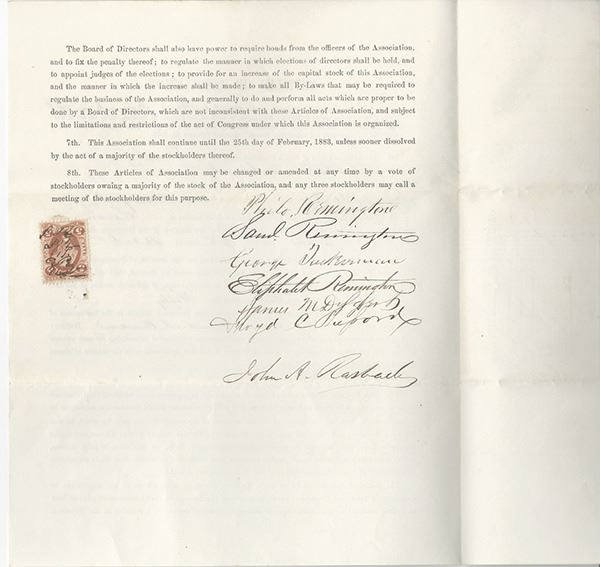 The Board of Directors shall also have power to require bonds from the officers of the Association,
and to fix the penalty thereof; to regulate the manner in which elections of directors shall be held, and
to appoint judges of the elections; to provide for an increase of the capital stock of this Association,
and the manner in which the increase shall be made; to make all By-Laws that may be required to
regulate the business of the Association, and generally to do and perform all acts which are proper to be
done by a Board of Directors, which are not inconsistent with these Articles of Association, and subject
to the limitations and restrictions of the act of Congress under which this Association is organized.
7th. This Association shall continue until the 25th day of February, 1883, unless sooner dissolved
by the act of a majority of the stockholders thereof.
8th. These Articles of Association may be changed or amended at any time by a vote of
stockholders owning a majority of the stock of the Association, and any three stockholders may call a
meeting of the stockholders for this purpose.
Philo Remington
Saml. Remington
George Tuckerman
Eliphalet Remington
James M
Floyd C
John A. Rasbach